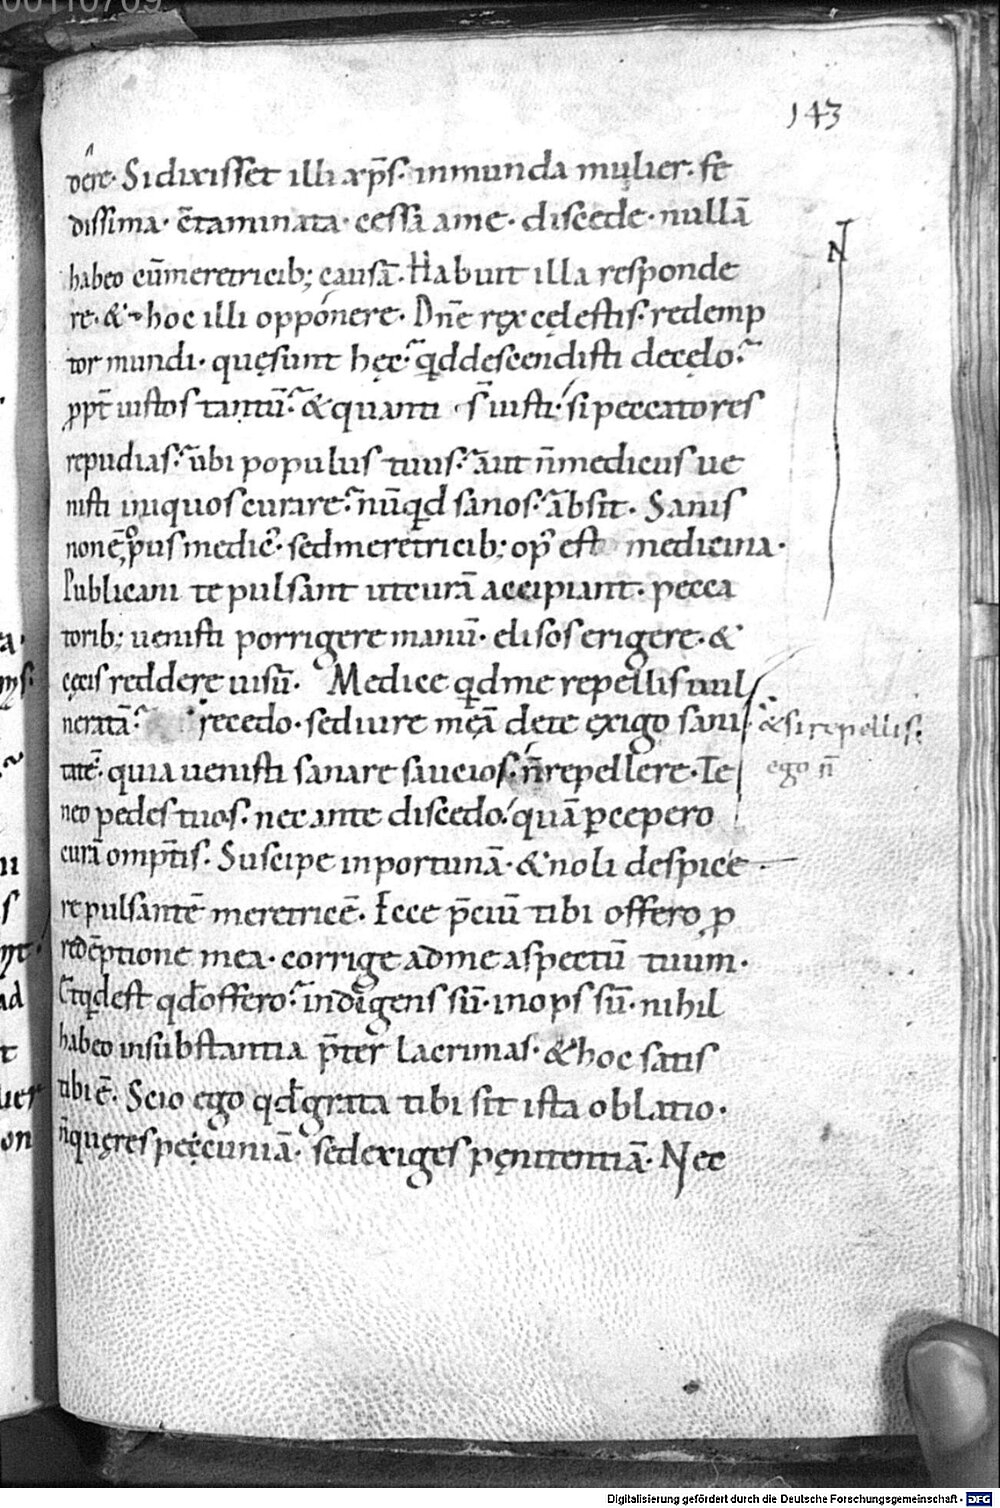 00110709
143
dere. Si dixisset illi xp̄s. inmunda mulier. fe
dissima. c̄taminata. cessa a me. discede. nullā
habeo cū meretricib; causā. Habuit illa responde
re. & hoc illi opponere. Dn̄e rex cęlestis. redemp
tor mundi. quę sunt hęc. qd descendisti de cęlo.
ppt̄ iustos tantū. & quanti s̄ iusti. si peccatores
repudias. ubi populus tuus. aut n̄ medicus ue
nisti iniquos curare. nūqd sanos. absit. Sanis
non ē opus medic̄. sed meretricib; op̄ est medicina.
Publicani te pulsant ut curā accipiant. pecca
torib; uenisti porrigere manū. elisos erigere. &
cęcis reddere uisū. Medice qd me repellis uul
neratā. recedo. sed iure meā de te exigo sani
& si repellis.
tatē. quia uenisti sanare saucios. n̄ repellere. Te
ego n̄
neo pedes tuos. nec ante discedo. quā pcepero
curā omptis. Suscipe inportunā. & noli despice
re pulsantē meretricē. Ecce p̄ciū tibi offero p
redēptione mea. corrige ad me aspectū tuum.
Et qd est qd offero. indigens sū. inops sū. nihil
habeo in substantia p̄ter lacrimas. & hoc satis
tibi ē. Scio ego qd grata tibi sit ista oblatio.
n̄ quęres peccuniā. sed exiges pęnitentiā. Nec
Digitalisierung gefördert durch die Deutsche Forschungsgemeinschaft - DFG